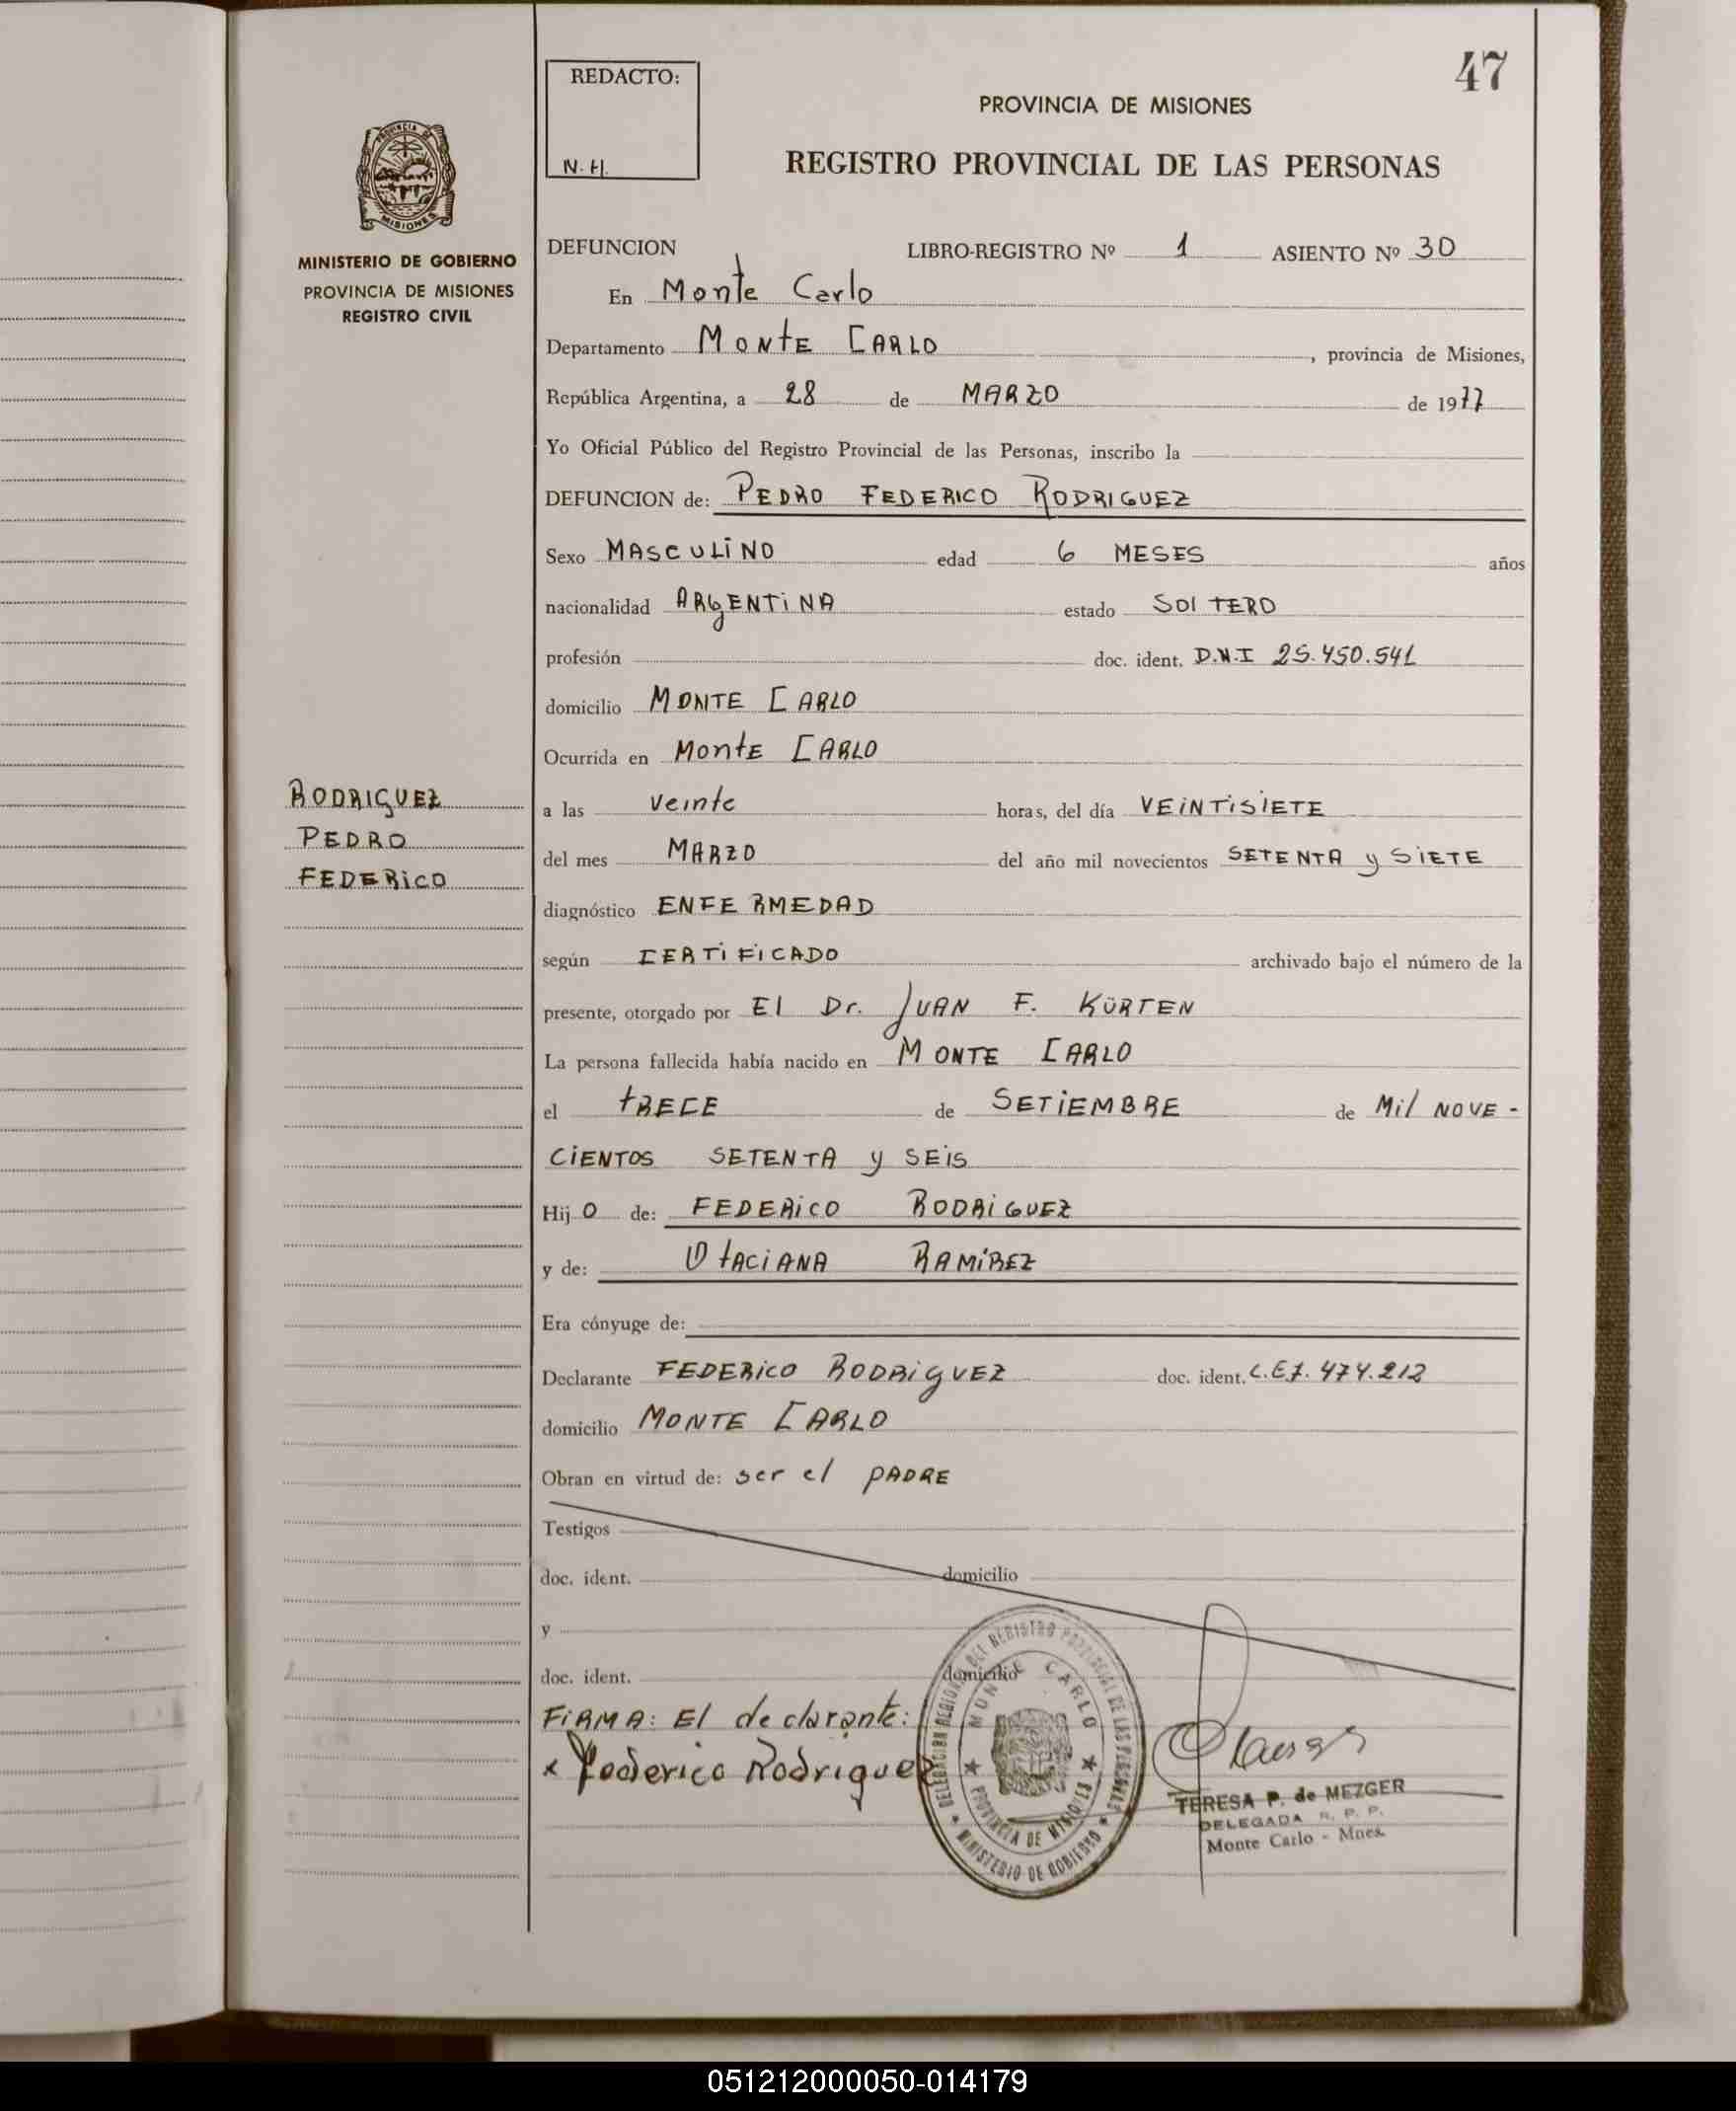 47
REDACTO:
N. H.
PROVINCIA DE MISIONES
REGISTRO PROVINCIAL DE LAS PERSONAS
PROVINCIA DE
MISIONES
MINISTERIO DE GOBIERNO
PROVINCIA DE MISIONES
REGISTRO CIVIL
DEFUNCION LIBRO-REGISTRO Nº 1 ASIENTO Nº 30
En Monte Carlo
Departamento MONTE CARLO, provincia de Misiones,
República Argentina, a 28 de MARZO de 1977
Yo Oficial Público del Registro Provincial de las Personas, inscribo la
DEFUNCION de: PEDRO FEDERICO RODRIGUEZ
Sexo MASCULINO edad 6 MESES años
nacionalidad ARGENTINA estado SOLTERO
profesión doc. ident. D.N.I 25.450.541
domicilio MONTE CARLO
Ocurrida en MONTE CARLO
RODRIGUEZ
PEDRO
FEDERICO
a las veinte horas, del día VEINTISIETE
del mes MARZO del año mil novecientos SETENTA y SIETE
diagnóstico ENFERMEDAD
según CERTIFICADO archivado bajo el número de la
presente, otorgado por El Dr. JUAN F. KÜRTEN
La persona fallecida había nacido en MONTE CARLO
el TRECE de SETIEMBRE de Mil NOVE-
CIENTOS SETENTA y SEIS
Hijo de: FEDERICO RODRIGUEZ
y de: OTACIANA RAMÍREZ
Era cónyuge de:
Declarante FEDERICO RODRIGUEZ doc. ident. C.E 7. 474.212
domicilio MONTE CARLO
Obran en virtud de: ser el PADRE
Testigos
doc. ident. domicilio
y
doc. ident. domicilio
FIRMA: El declarante:
x Federico Rodriguez
DELEGACION REGIONAL DEL REGISTRO PROVINCIAL DE LAS PERSONAS
MONTE CARLO
PROVINCIA DE MISIONES
MINISTERIO DE GOBIERNO
TERESA P. de MEZGER
DELEGADA R. P. P.
Monte Carlo - Mnes.
051212000050-014179